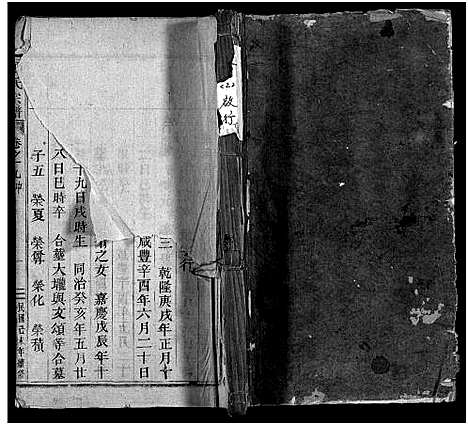 ㈡
啟行
三 乾隆庚戌年正月十
咸豐辛酉年六月二十日
之女 嘉慶戊辰年十
十九日戌時生 同治癸亥年五月廿
八日巳時卒 台葬大壠與文頌等合墓
子五 榮夏 榮胥 榮化 榮積
氏宗譜 卷之